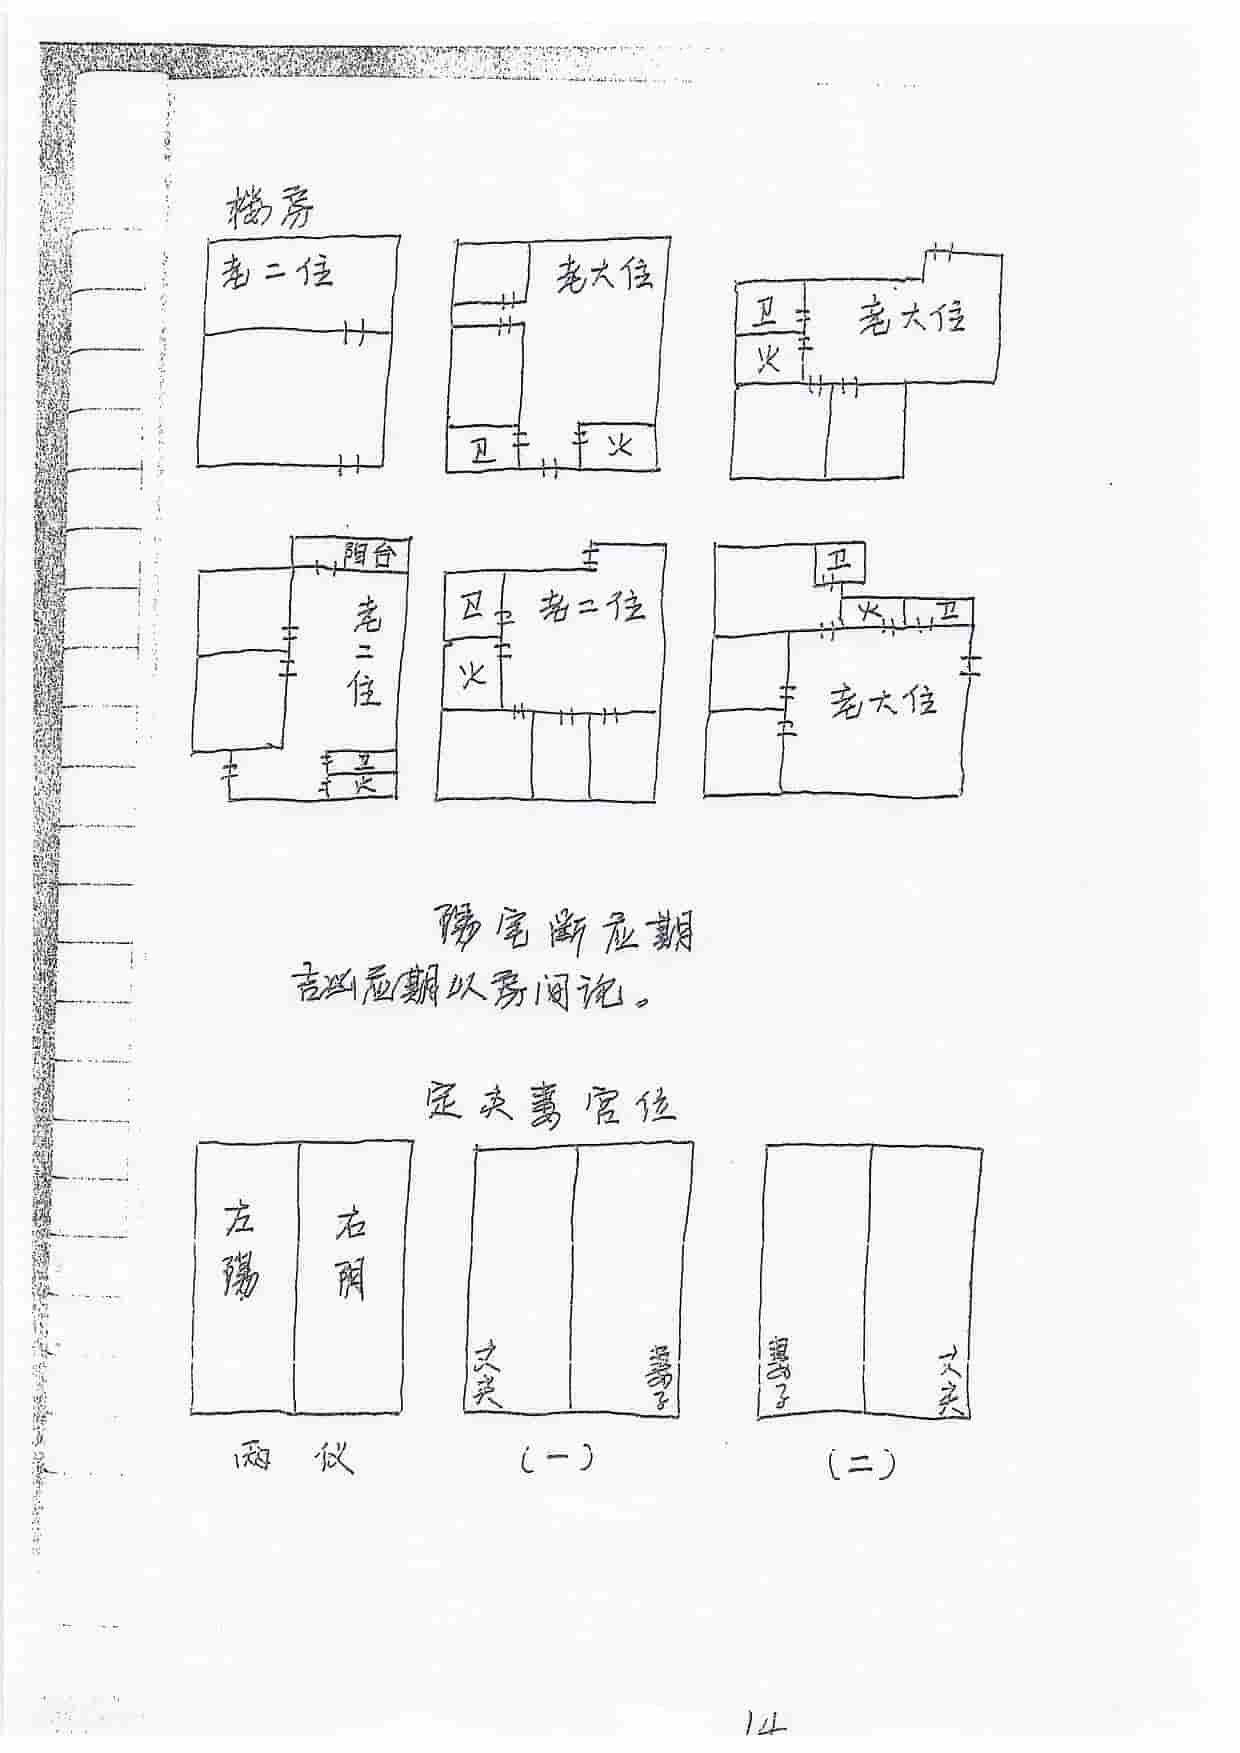 楼房
老二住
老大住
卫
火
卫
老大住
火
阳台
老二住
卫
火
卫
老二住
火
卫
火
卫
老大住
陽宅断应期
吉凶应期以房间论。
定夫妻宫位
左陽
右阴
丈夫
妻子
妻子
丈夫
两仪
(一)
(二)
14